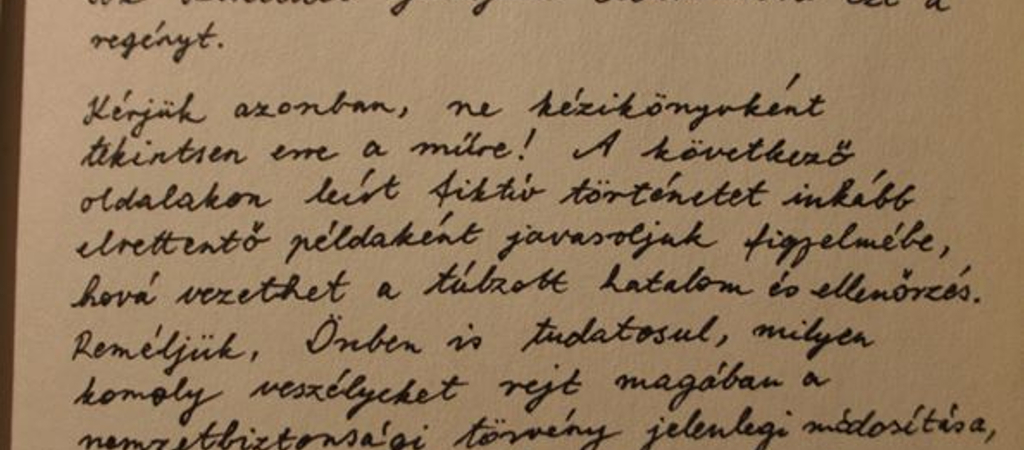 ezt a
regényt.
Kérjük azonban, ne kézikönyvként
tekintsen erre a műre! A következő
oldalakon leírt fiktív történetet inkább
elrettentő példaként javasoljuk figyelmébe,
hová vezethet a túlzott hatalom és ellenőrzés.
Reméljük, Önben is tudatosul, milyen
komoly veszélyeket rejt magában a
nemzetbiztonsági törvény jelenlegi módosítása,